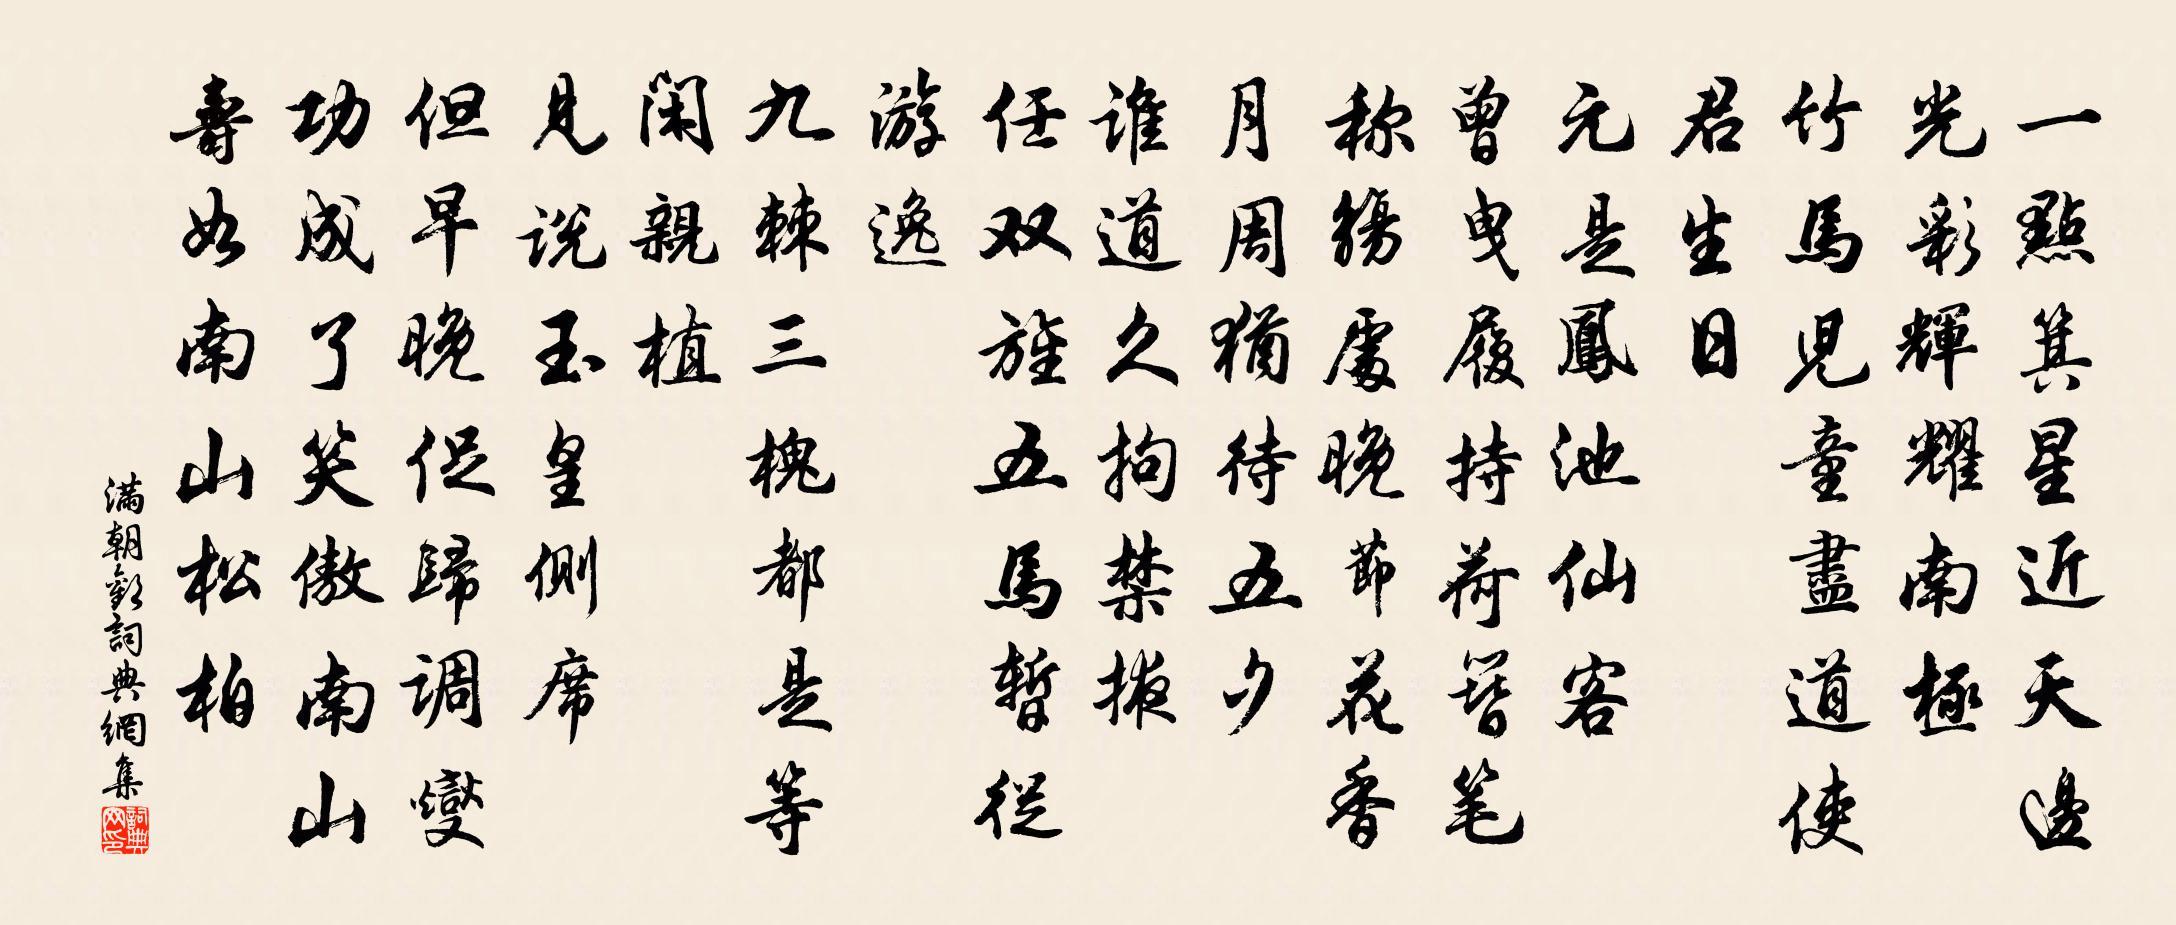 一點箕星近天邊
光彩輝耀南極
竹馬兒童盡道使
君生日
元是鳳池仙客
曾曳履持荷簪笔
称觴處晚節花香
月周猶待五夕
谁道久拘禁掖
任双旌五馬暫從
游逸
九棘三槐都是等
閑親植
見説玉皇側席
但早晚促歸调燮
功成了笑傲南山
壽如南山松柏
滿朝歡詞典網集
詞典網印